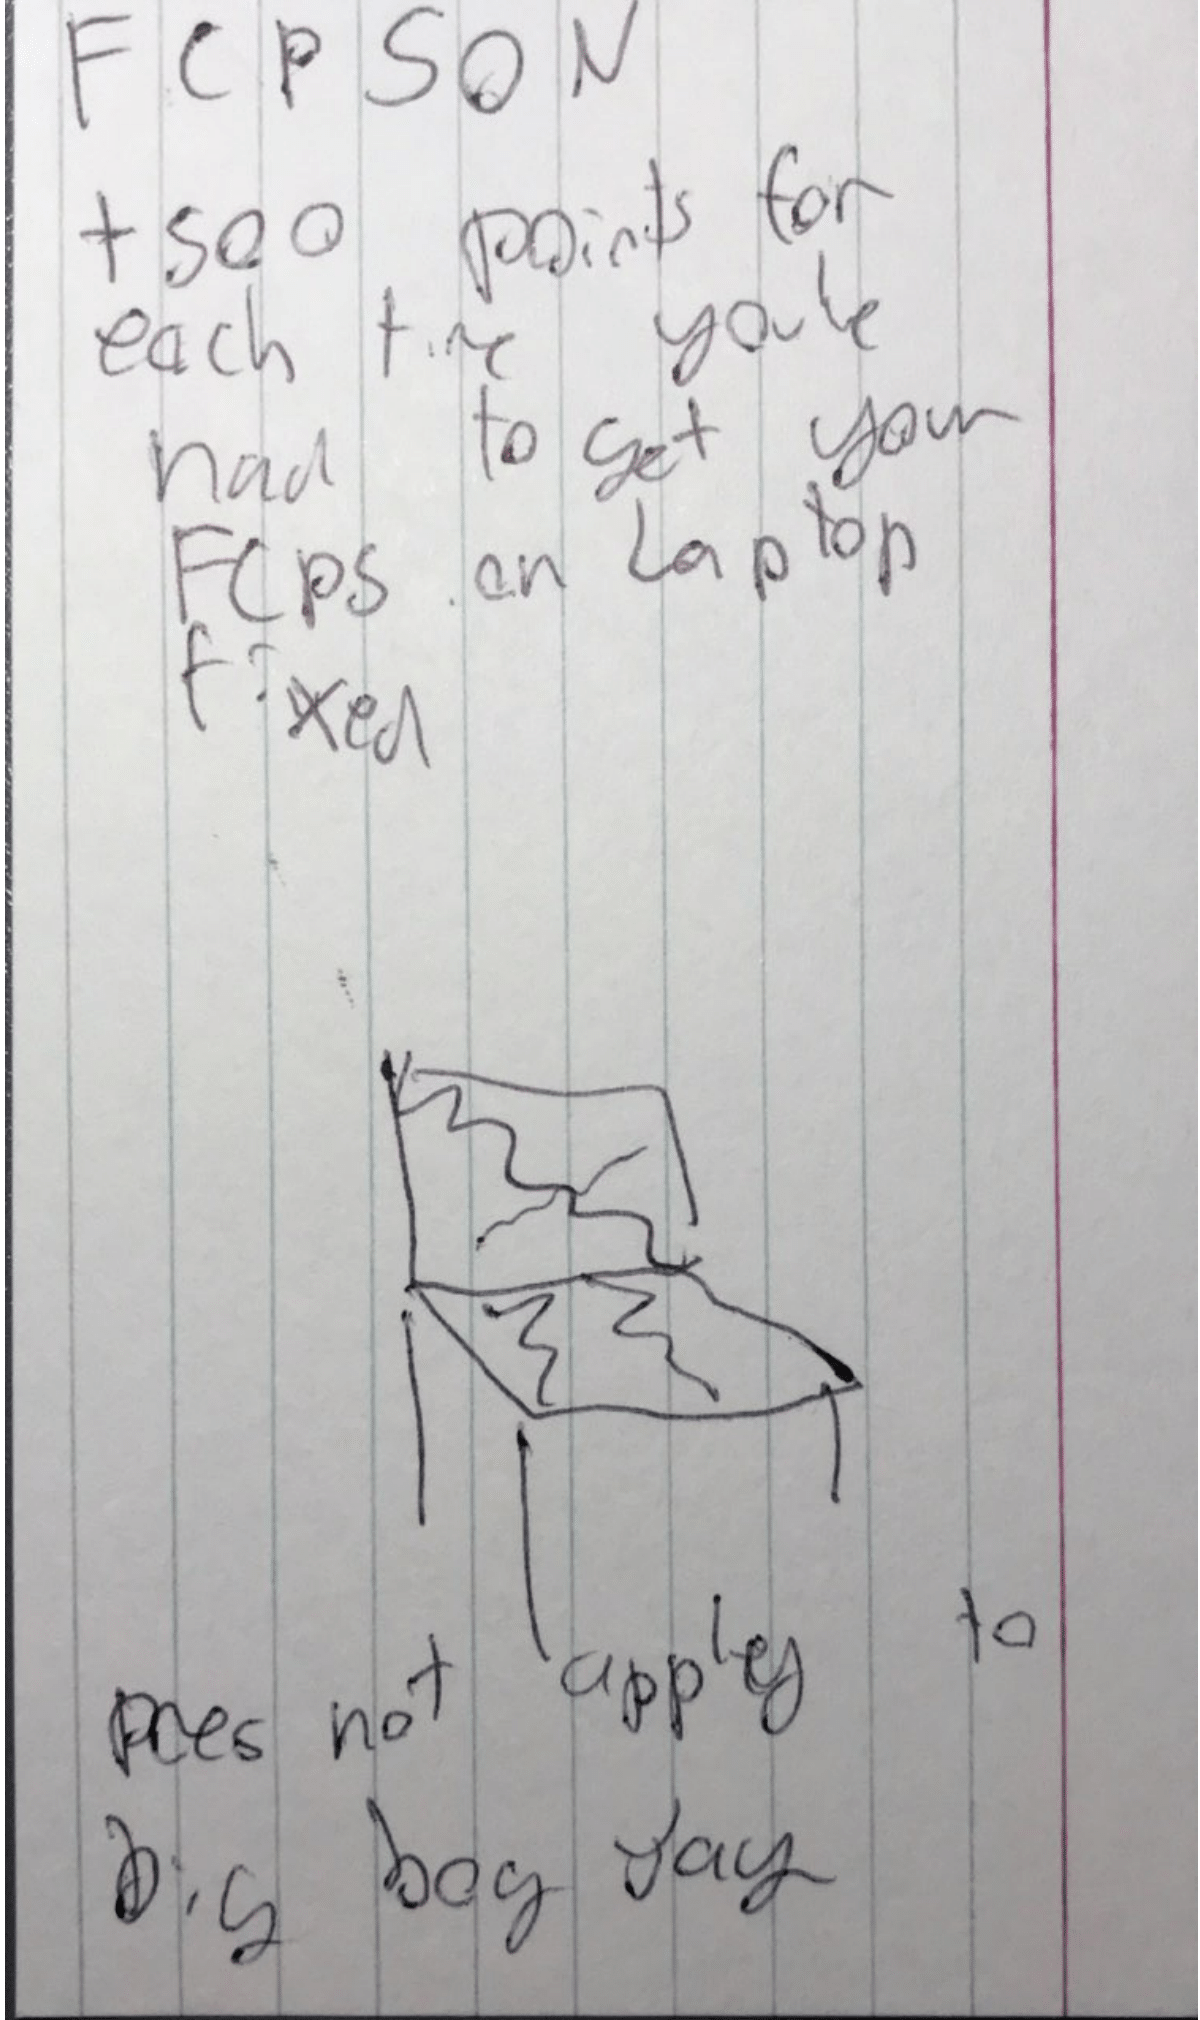 FCPSON
+500 points for
each time you've
had to get your
FCPS on Laptop
fixed
Does not appley to
big boy Jay